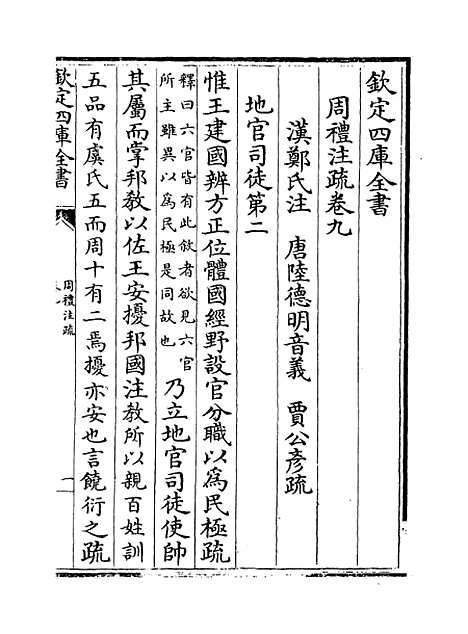 欽定四庫全書
周禮注疏卷九
漢鄭氏注　唐陸德明音義　賈公彥疏
地官司徒第二
惟王建國辨方正位體國經野設官分職以為民極疏
釋曰六官皆有此敘者欲見六官
所主雖異以為民極是同故也
乃立地官司徒使帥
其屬而掌邦教以佐王安擾邦國注教所以親百姓訓
五品有虞氏五而周十有二焉擾亦安也言饒衍之疏
欽定四庫全書
周禮注疏